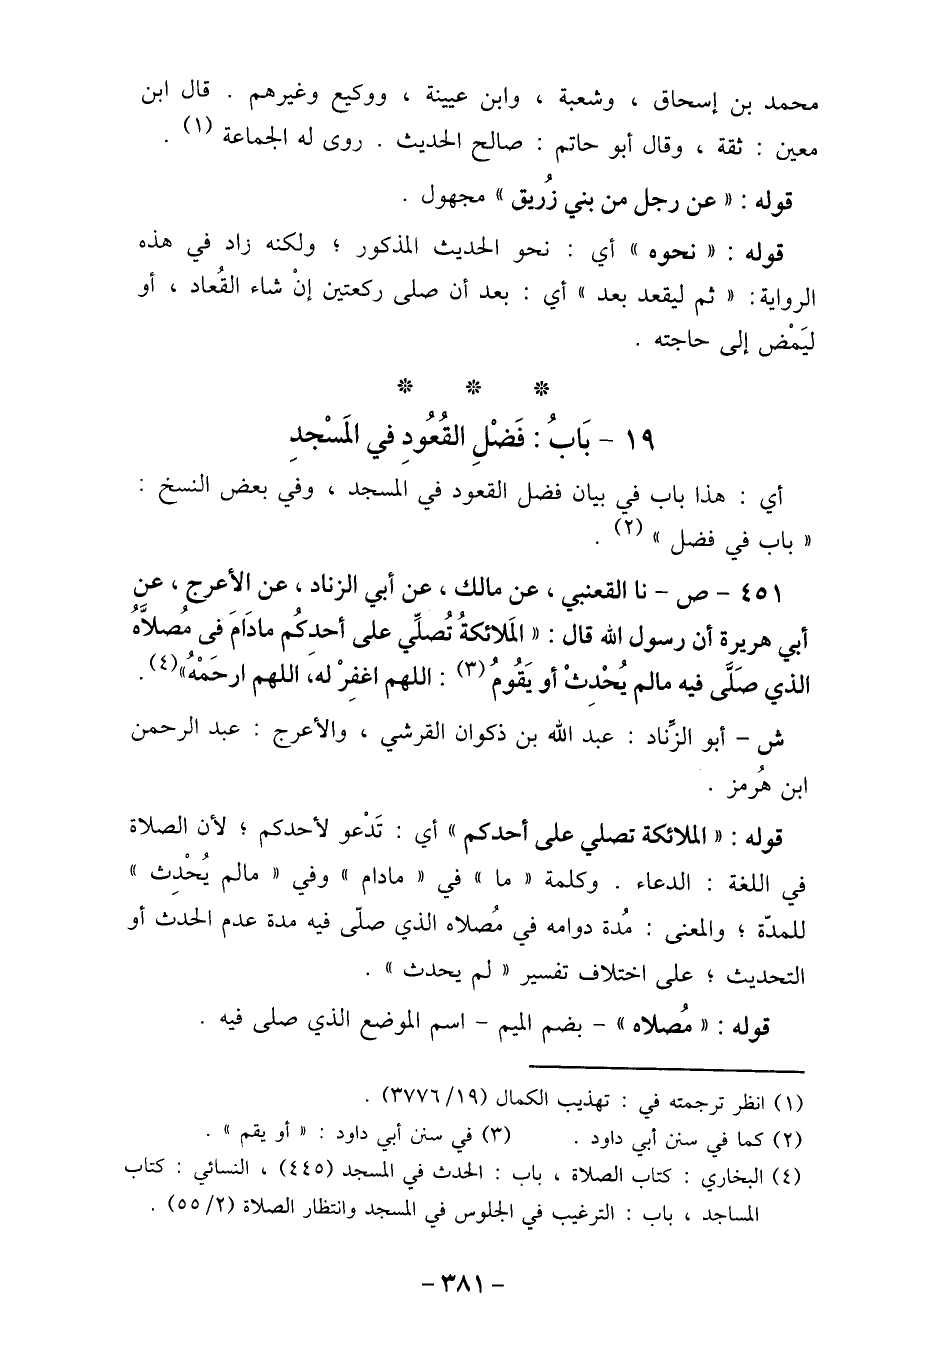 محمد بن إسحاق ، وشعبة ، وابن عيينة ، ووكيع وغيرهم . قال ابن
معين : ثقة ، وقال أبو حاتم : صالح الحديث . روى له الجماعة (١) .
قوله : « عن رجل من بني زُريق » مجهول .
قوله : « نحوه » أي : نحو الحديث المذكور ؛ ولكنه زاد في هذه
الرواية: « ثم ليقعد بعد » أي : بعد أن صلى ركعتين إنْ شاء القُعاد ، أو
ليَمْض إلى حاجته .
* * *
١٩ - بَابُ : فَضْلِ القُعُودِ في المَسْجدِ
أي : هذا باب في بيان فضل القعود في المسجد ، وفي بعض النسخ :
« باب في فضل » (٢) .
٤٥١ - ص - نا القعنبي ، عن مالك ، عن أبي الزناد ، عن الأعرج ، عن
أبي هريرة أن رسول الله قال : « المَلائكةُ تُصلِّي على أحدِكُم مادَامَ فى مُصلاَّهُ
الذي صَلَّى فيه مالم يُحْدِثْ أو يَقُومُ (٣) : اللهم اغفِرْ له، اللهم ارحَمْهُ»(٤) .
ش - أبو الزِّناد : عبد الله بن ذكوان القرشي ، والأعرج : عبد الرحمن
ابن هُرمز .
قوله : « الملائكة تصلي على أحدكم » أي : تَدْعو لأحدكم ؛ لأن الصلاة
في اللغة : الدعاء . وكلمة « ما » في « مادام » وفي « مالم يُحْدِث »
للمدّة ؛ والمعنى : مُدة دوامه في مُصلاه الذي صلّى فيه مدة عدم الحدث أو
التحديث ؛ على اختلاف تفسير « لم يحدث » .
قوله : « مُصلاه » - بضم الميم - اسم الموضع الذي صلى فيه .
(١) انظر ترجمته في : تهذيب الكمال (٣٧٧٦/١٩) .
(٢) كما في سنن أبي داود . (٣) في سنن أبي داود : « أو يقم » .
(٤) البخاري : كتاب الصلاة ، باب : الحدث في المسجد (٤٤٥) ، النسائي : كتاب
المساجد ، باب : الترغيب في الجلوس في المسجد وانتظار الصلاة (٥٥/٢) .
- ٣٨١ -